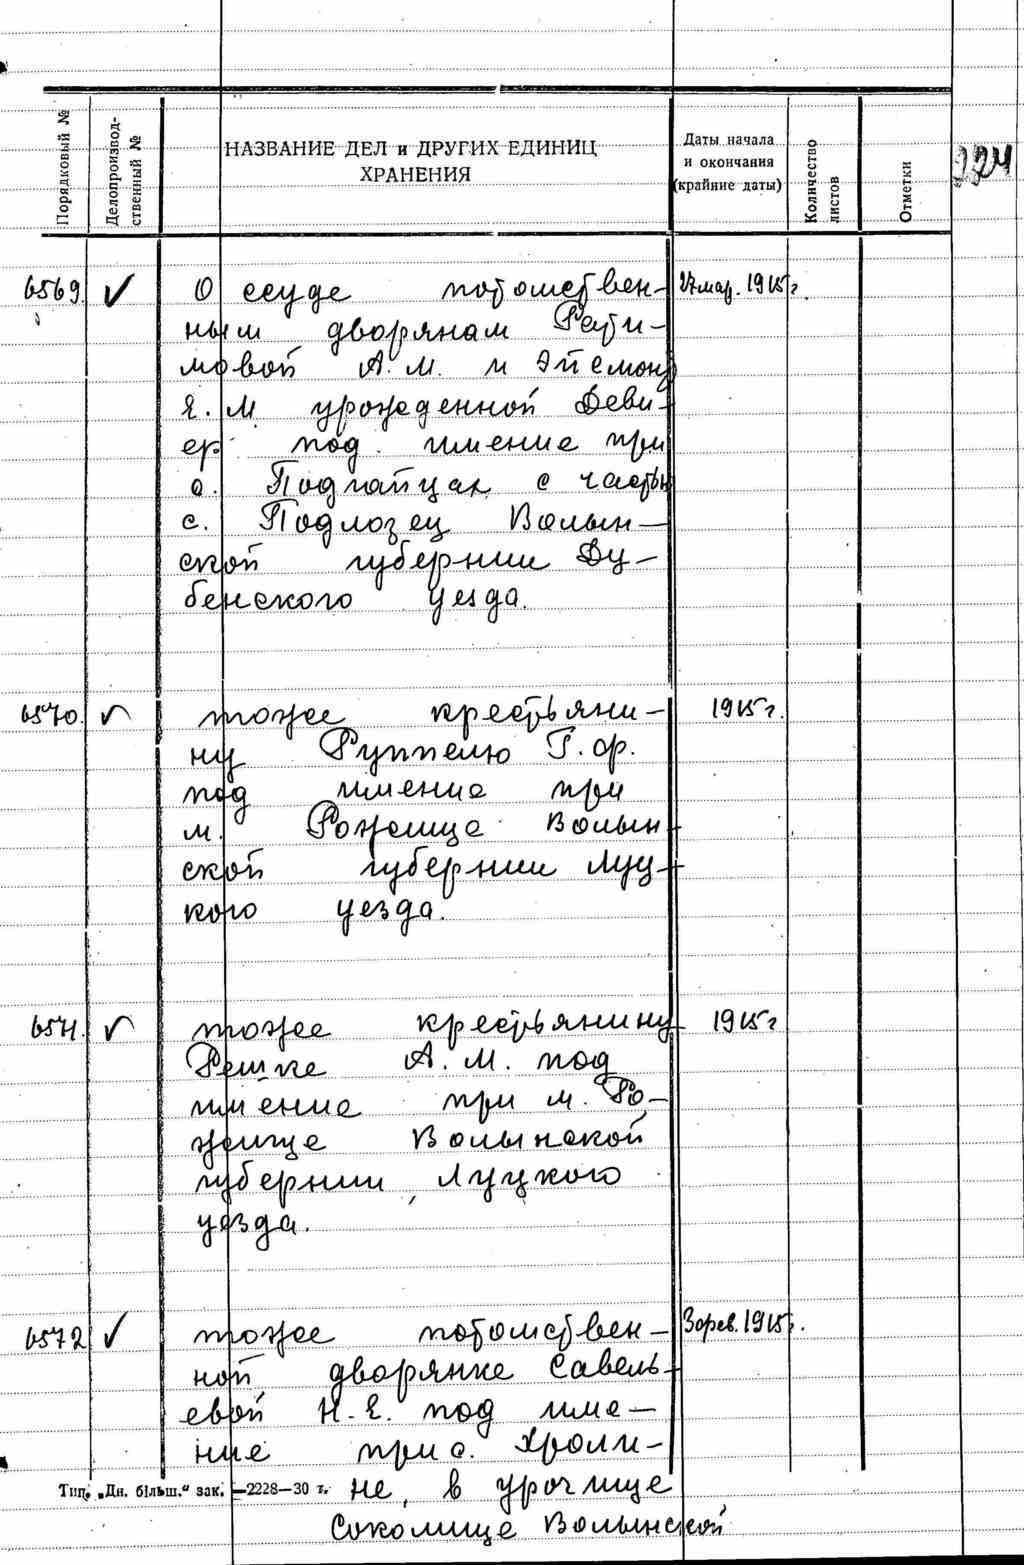 Порядковый №
Делопроизвод-
ственный №
НАЗВАНИЕ ДЕЛ и ДРУГИХ ЕДИНИЦ
ХРАНЕНИЯ
Даты начала
и окончания
(крайние даты)
Количество
листов
Отметки
224
6569. ✓ О ссуде потомствен- 27 мар. 1915 г.
ным дворянам Рати-
мовой А. М. и Эйсмонд
Е. М урожденной Деви-
ер под имение при
с. Подгайцах с частью
с. Подлозец Волын-
ской губернии Ду-
бенского уезда.
6570. ✓ тоже крестьяни- 1915 г.
ну Руппелю Г. Ф.
под имение при
м. Рожище Волын
ской губернии Луц-
кого уезда.
6571. ✓ тоже крестьянину 1915 г
Решке А. М. под
имение при м. Ро-
жище Волынской
губернии Луцкого
уезда.
6572 ✓ тоже потомствен- 3 фев. 1915 г.
ной дворянке Савель-
евой Н. Е. под име-
ние при с. Хроли-
не, в урочище
Соколище Волынской
Тип. „Дн. більш." зак. —2228—30 т.